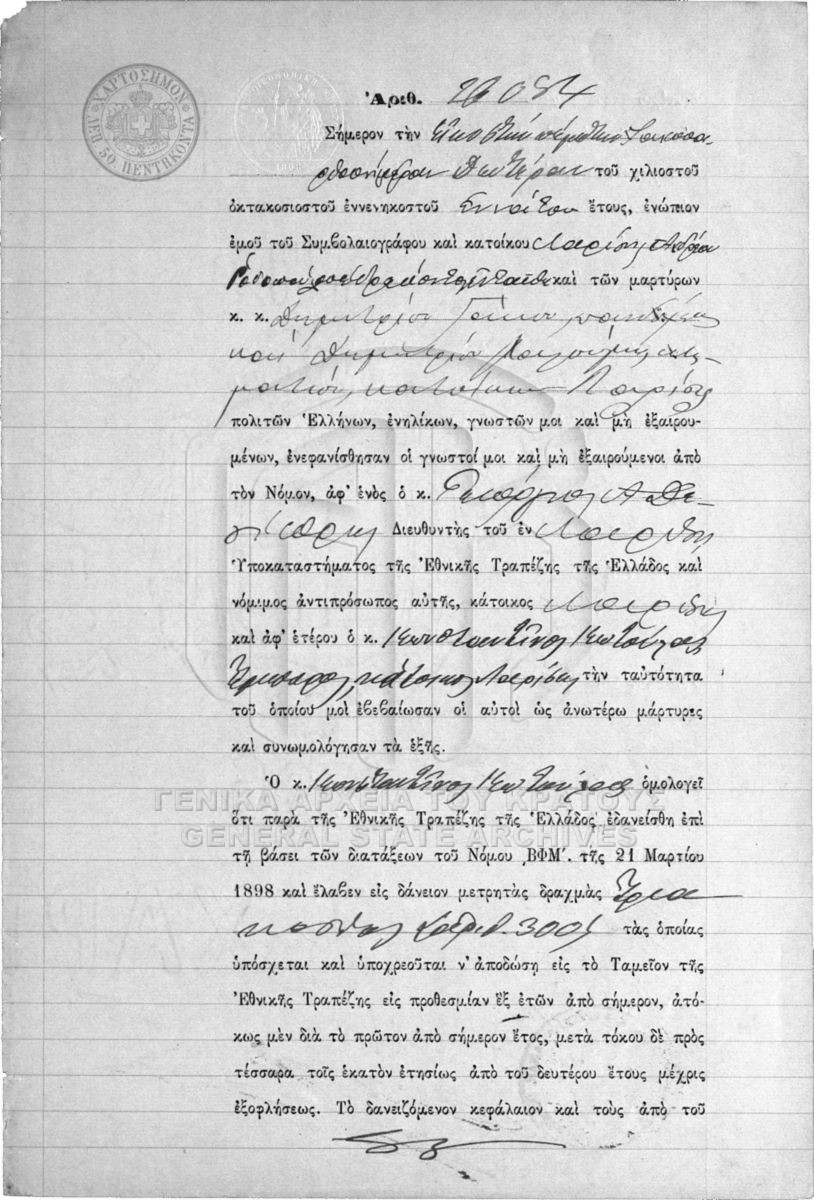 ΧΑΡΤΟΣΗΜΟΝ
ΛΕΠ. 50. ΠΕΝΤΗΚΟΝΤΑ
Ἀριθ. 26084
Σήμερον τὴν εἰκοστὴν πέμπτην
Δευτέραν τοῦ χιλιοστοῦ
ὀκτακοσιοστοῦ ἐννενηκοστοῦ ἐννάτου ἔτους, ἐνώπιον
ἐμοῦ τοῦ Συμβολαιογράφου καὶ κατοίκου Λαρίσης Ἀνδρέου
Ροδοπούλου ἑδρεύοντος ἐνταῦθα καὶ τῶν μαρτύρων
κ. κ. Δημητρίου
καὶ Δημητρίου κτη-
ματίου, κατοίκων Λαρίσης
πολιτῶν Ἑλλήνων, ἐνηλίκων, γνωστῶν μοι καὶ μὴ ἐξαιρου-
μένων, ἐνεφανίσθησαν οἱ γνωστοί μοι καὶ μὴ ἐξαιρούμενοι ἀπὸ
τὸν Νόμον, ἀφ' ἑνὸς ὁ κ. Γεώργιος
Διευθυντὴς τοῦ ἐν Λαρίσῃ
Ὑποκαταστήματος τῆς Ἐθνικῆς Τραπέζης τῆς Ἑλλάδος καὶ
νόμιμος ἀντιπρόσωπος αὐτῆς, κάτοικος Λαρίσης
καὶ ἀφ' ἑτέρου ὁ κ. Κωνσταντῖνος Κωτούλας
ἔμπορος, κάτοικος Λαρίσης τὴν ταὐτότητα
τοῦ ὁποίου μοὶ ἐβεβαίωσαν οἱ αὐτοὶ ὡς ἀνωτέρω μάρτυρες
καὶ συνωμολόγησαν τὰ ἑξῆς.
Ὁ κ. Κωνσταντῖνος Κωτούλας ὁμολογεῖ
ΓΕΝΙΚΑ ΑΡΧΕΙΑ ΤΟΥ ΚΡΑΤΟΥΣ
ὅτι παρὰ τῆς Ἐθνικῆς Τραπέζης τῆς Ἑλλάδος ἐδανείσθη ἐπὶ
GENERAL STATE ARCHIVES
τῇ βάσει τῶν διατάξεων τοῦ Νόμου ͵ΒΦΜ΄. τῆς 21 Μαρτίου
1898 καὶ ἔλαβεν εἰς δάνειον μετρητὰς δραχμὰς τρια
κοσίας ἀριθ. 300 τὰς ὁποίας
ὑπόσχεται καὶ ὑποχρεοῦται ν' ἀποδώσῃ εἰς τὸ Ταμεῖον τῆς
Ἐθνικῆς Τραπέζης εἰς προθεσμίαν ἓξ ἐτῶν ἀπὸ σήμερον, ἀτό-
κως μὲν διὰ τὸ πρῶτον ἀπὸ σήμερον ἔτος, μετὰ τόκου δὲ πρὸς
τέσσαρα τοῖς ἑκατὸν ἐτησίως ἀπὸ τοῦ δευτέρου ἔτους μέχρις
ἐξοφλήσεως. Τὸ δανειζόμενον κεφάλαιον καὶ τοὺς ἀπὸ τοῦ